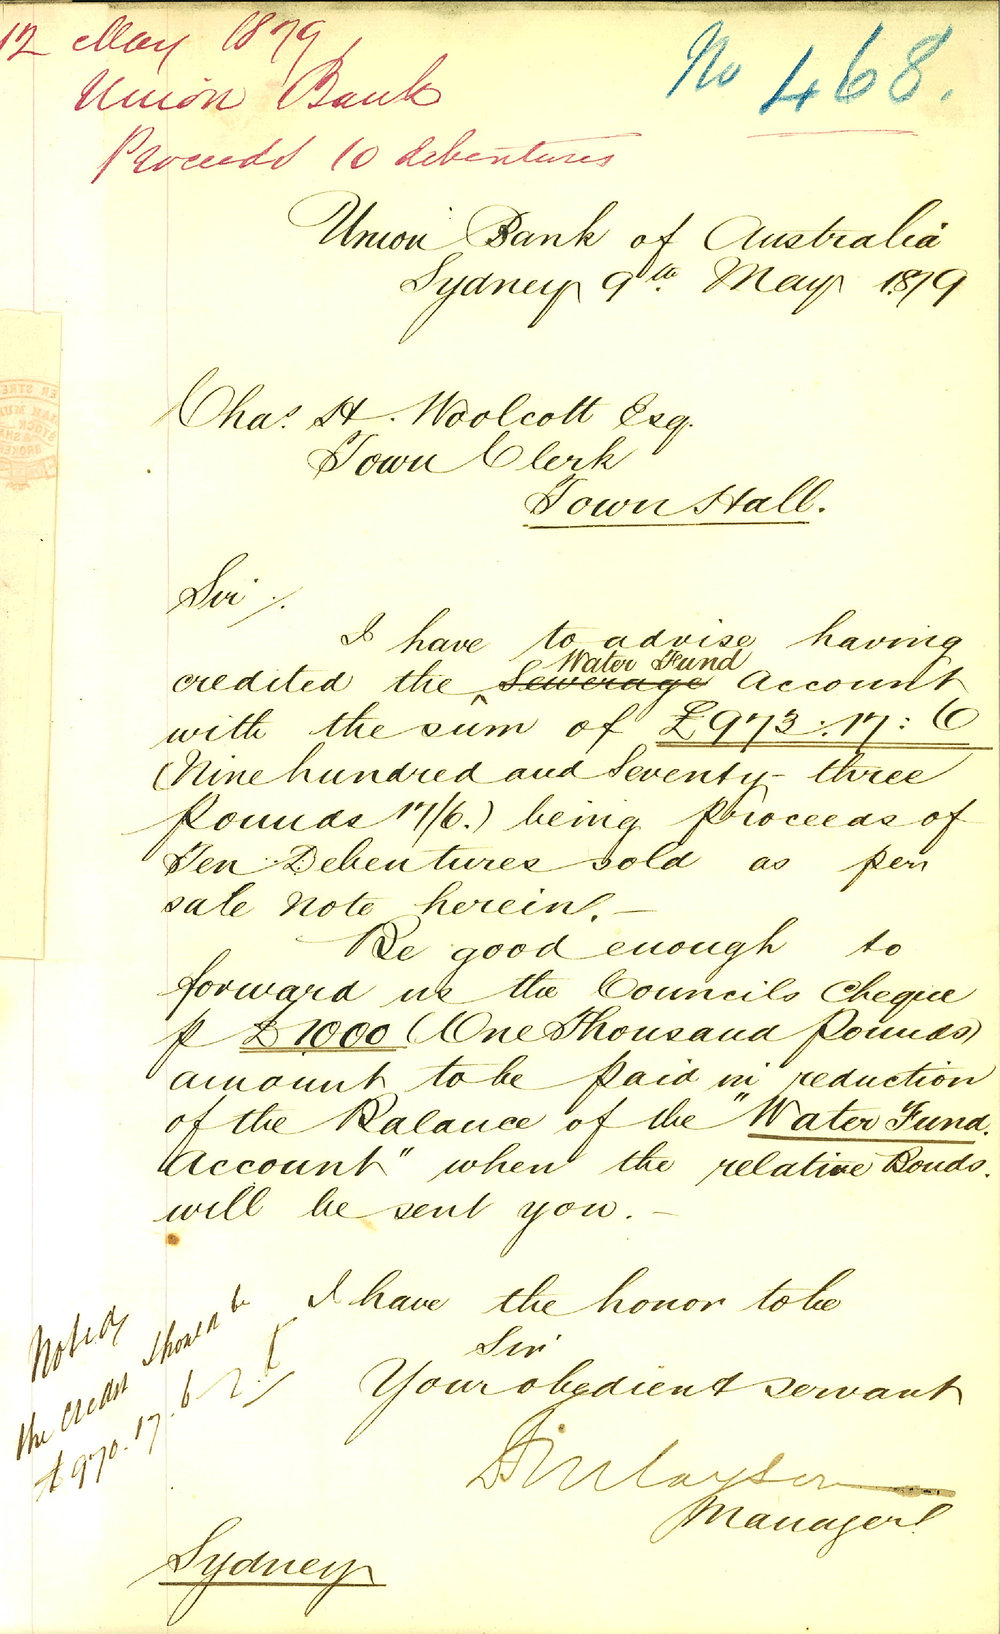 12 May 1879
Union Bank
Proceeds 10 debentures
No 468.
Union Bank of Australia
Sydney 9th May 1879
Chas. H. Woolcott Esq.
Town Clerk
Town Hall.
Sir /.
I have to advise having
Water Fund
credited the Sewerage Account
with the sum of £973:17:6
(Nine hundred and Seventy-three
Pounds 17/6.) being proceeds of
Ten Debentures sold as per
sale note herein. —
Be good enough to
forward us the Councils Cheque
p £1000 (One Thousand Pounds)
amount to be paid in reduction
of the Balance of the "Water Fund.
Account" when the relative Bonds.
will be sent you. —
I have the honor to be
Sir
Your obedient servant
Manager
Noted
the credit should be
£970.17.6
Sydney